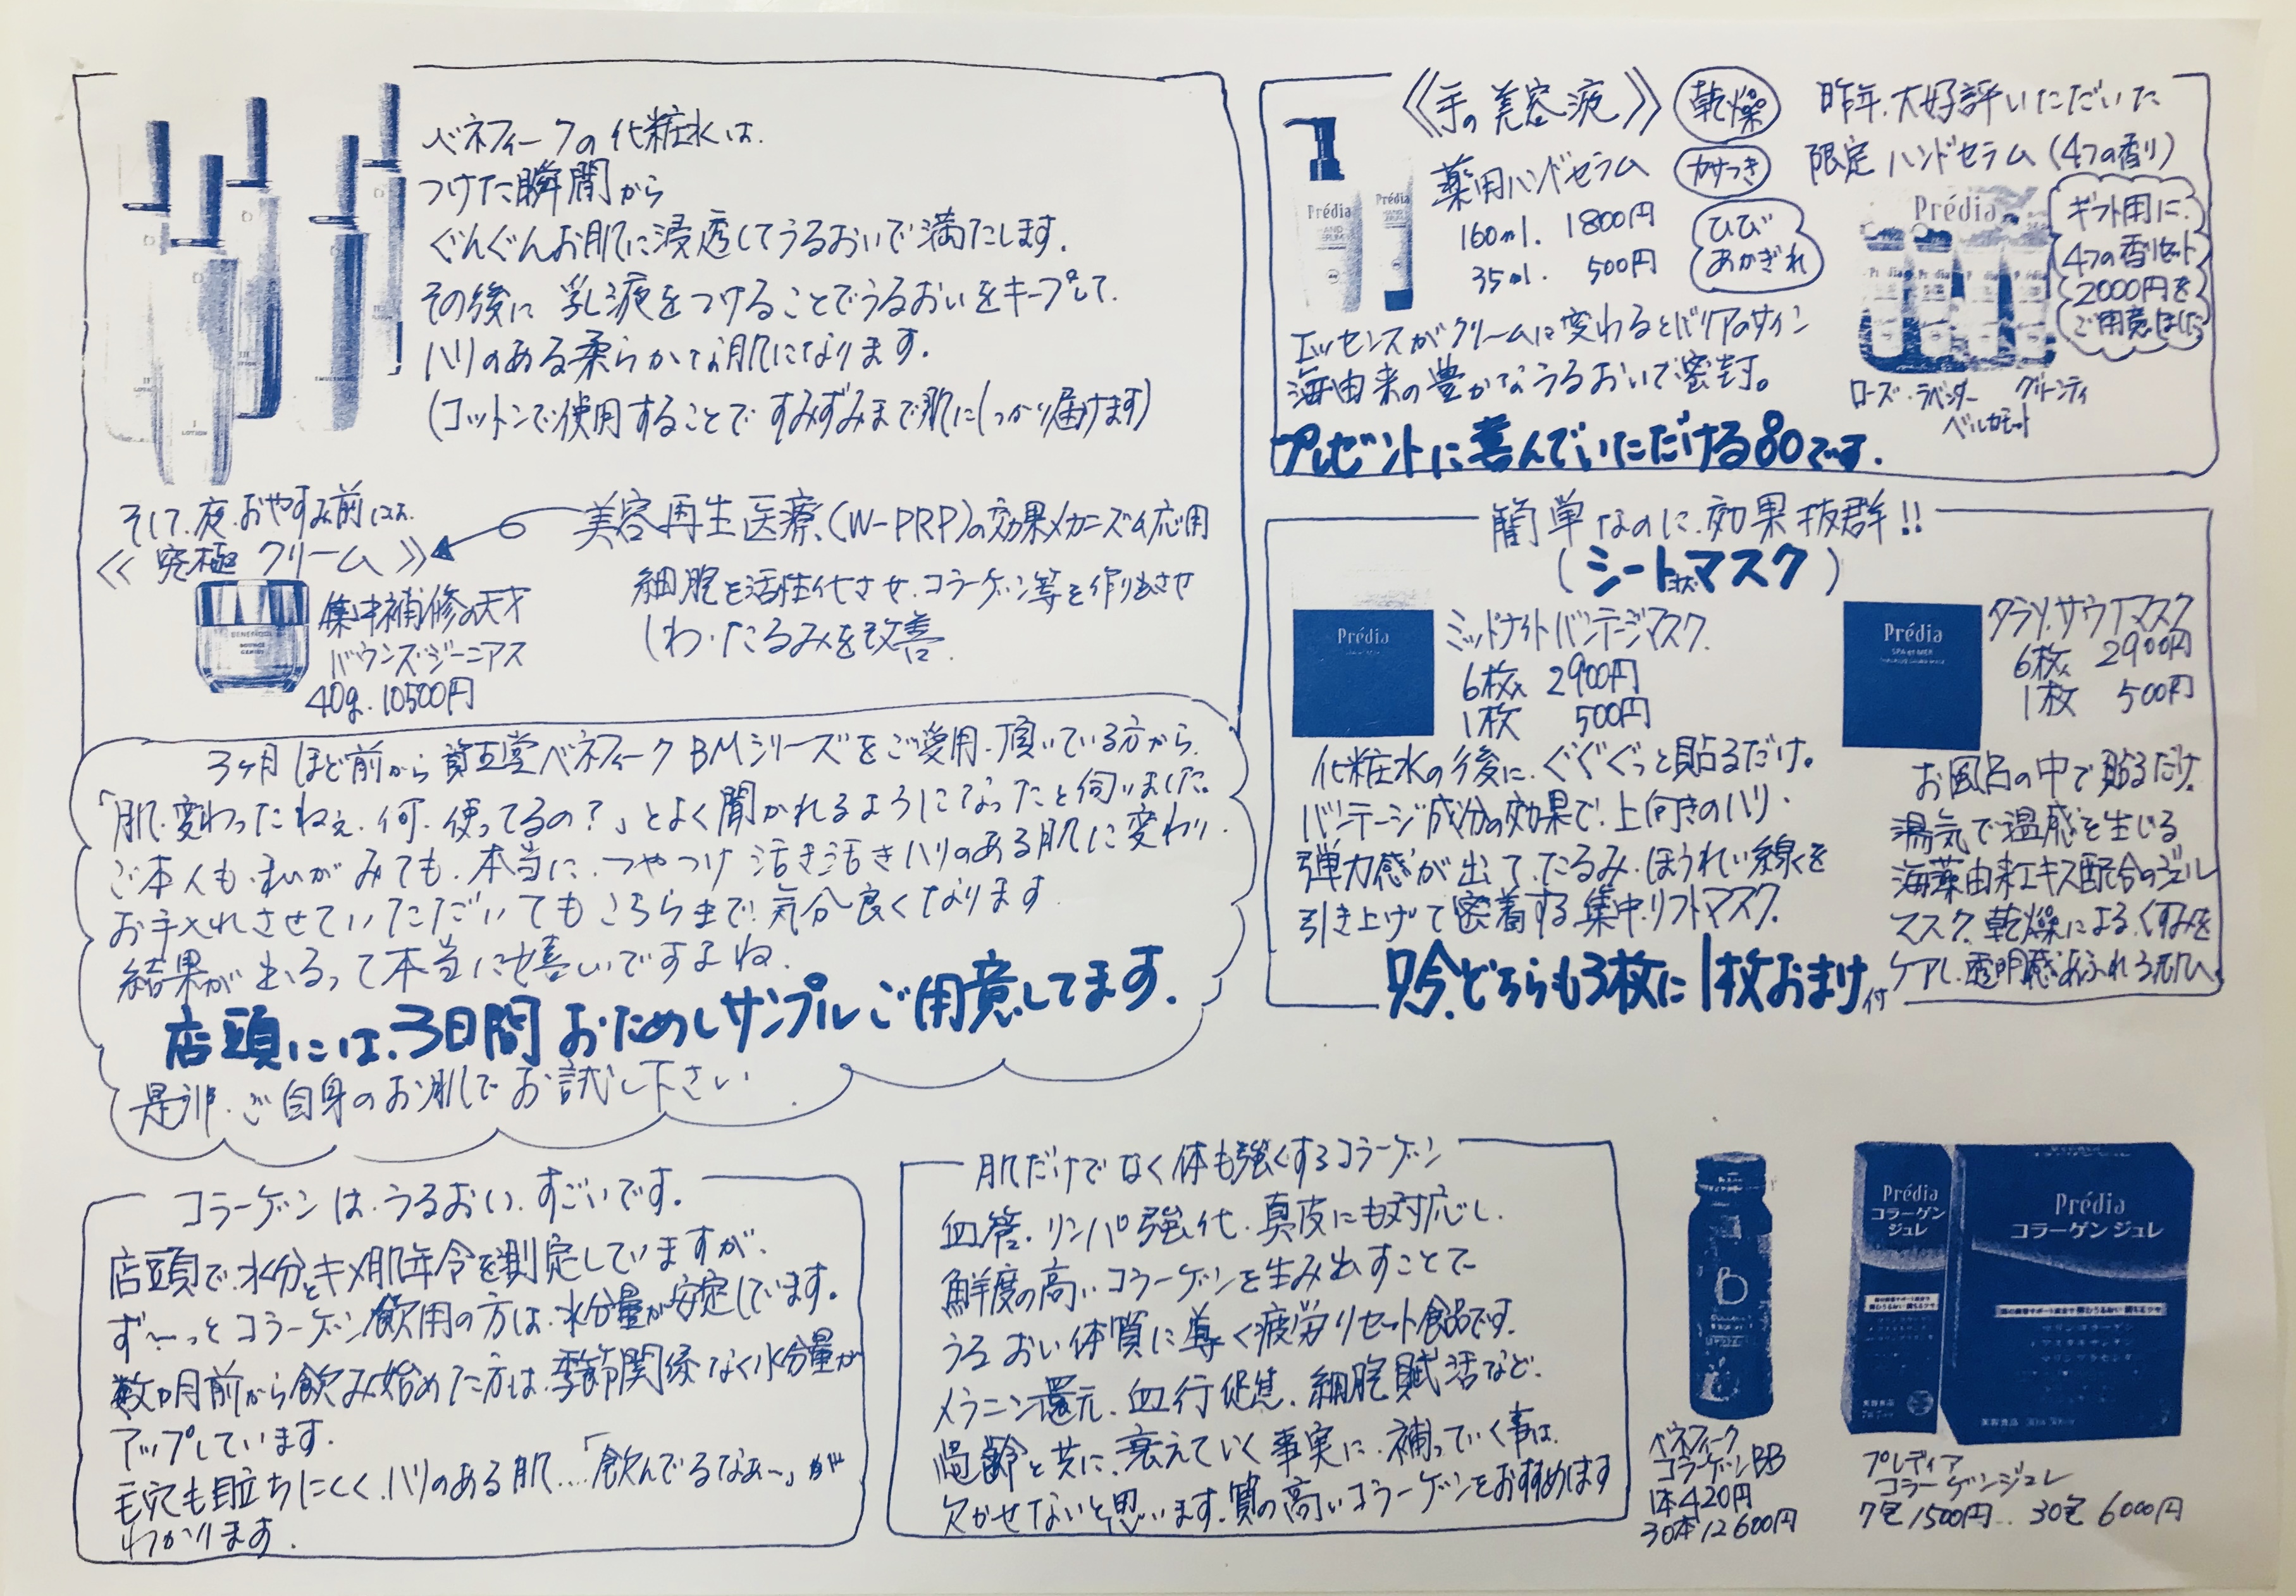 ベネフィークの化粧水は、
つけた瞬間から
ぐんぐんお肌に浸透してうるおいで満たします。
その後に乳液をつけることでうるおいをキープして、
ハリのある柔らかな肌になります。
(コットンで使用することですみずみまで肌にしっかり届けます)
そして、夜、おやすみ前には、
《究極クリーム》
集中補修の天才
バウンズ・ジーニアス
40g. 10500円
BENEFIQUE
BOUNCE
GENIUS
美容再生医療、(W-PRP)の効果メカニズム応用
細胞を活性化させ、コラーゲン等を作り出させ
しわ・たるみを改善
3ヶ月ほど前から資生堂ベネフィークBMシリーズをご愛用頂いている方から、
「肌、変わったねぇ、何、使ってるの?」とよく聞かれるようになったと伺いました。
ご本人も、私がみても、本当に、つやつけ活き活きハリのある肌に変わり、
お手入れさせていただいてもこちらまで気分良くなります
結果が出るって本当に嬉しいですよね。
店頭には、3日間おためしサンプルご用意してます.
是非、ご自身のお肌でお試し下さい
コラーゲンは、うるおい、すごいです。
店頭で、水分とキメ肌年令を測定していますが、
ず〜っとコラーゲン飲用の方は、水分量が安定しています。
数ヵ月前から飲み始めた方は、季節関係なく水分量が
アップしています.
毛穴も目立ちにくく、ハリのある肌....「飲んでるなあ〜」が
わかります.
《手の美容液》
乾燥
薬用ハンドセラム
かさつき
160ml. 1800円
35ml. 500円
ひび
あかぎれ
Prédia
Prédia
エッセンスがクリームに変わるとバリアのサイン
海由来の豊かなうるおいで密封。
プレゼントに喜んでいただける80です.
昨年、大好評いただいた
限定ハンドセラム(4つの香り)
Prédia
ギフト用に、
4つの香りセット
2000円を
ご用意しました
ローズ・ラベンダー グリーンティ
ベルガモット
簡単なのに効果抜群!!
(シート状マスク)
Prédia
ミッドナイトバンテージマスク
6枚入 2900円
1枚 500円
化粧水の後に、ぐぐぐっと貼るだけ。
バンテージ成分の効果で、上向きのハリ・
弾力感が出て、たるみ・ほうれい線を
引き上げて密着する集中リフトマスク.
Prédia
SPA et MER
タラソ.サウナマスク
6枚入 2900円
1枚 500円
お風呂の中で貼るだけ、
湯気で温感を生じる
海藻由来エキス配合のジェル
マスク、乾燥による、くすみを
ケアし、透明感あふれる肌へ
只今、どちらも3枚に1枚おまけ付
肌だけでなく体も強くするコラーゲン
血管、リンパ強化、真皮にも対応し、
鮮度の高いコラーゲンを生み出すことで
うるおい体質に導く疲労リセット食品です.
メラニン還元、血行促進、細胞賦活など、
齢と共に、衰えていく事実に、補っていく事は、
欠かせないと思います.質の高いコラーゲンをおすすめします
ベネフィーク
コラーゲンBB
1本420円
30本12600円
Prédia
コラーゲン
ジュレ
Prédia
コラーゲン ジュレ
プレディア
コラーゲンジュレ
7包1500円.. 30包6000円